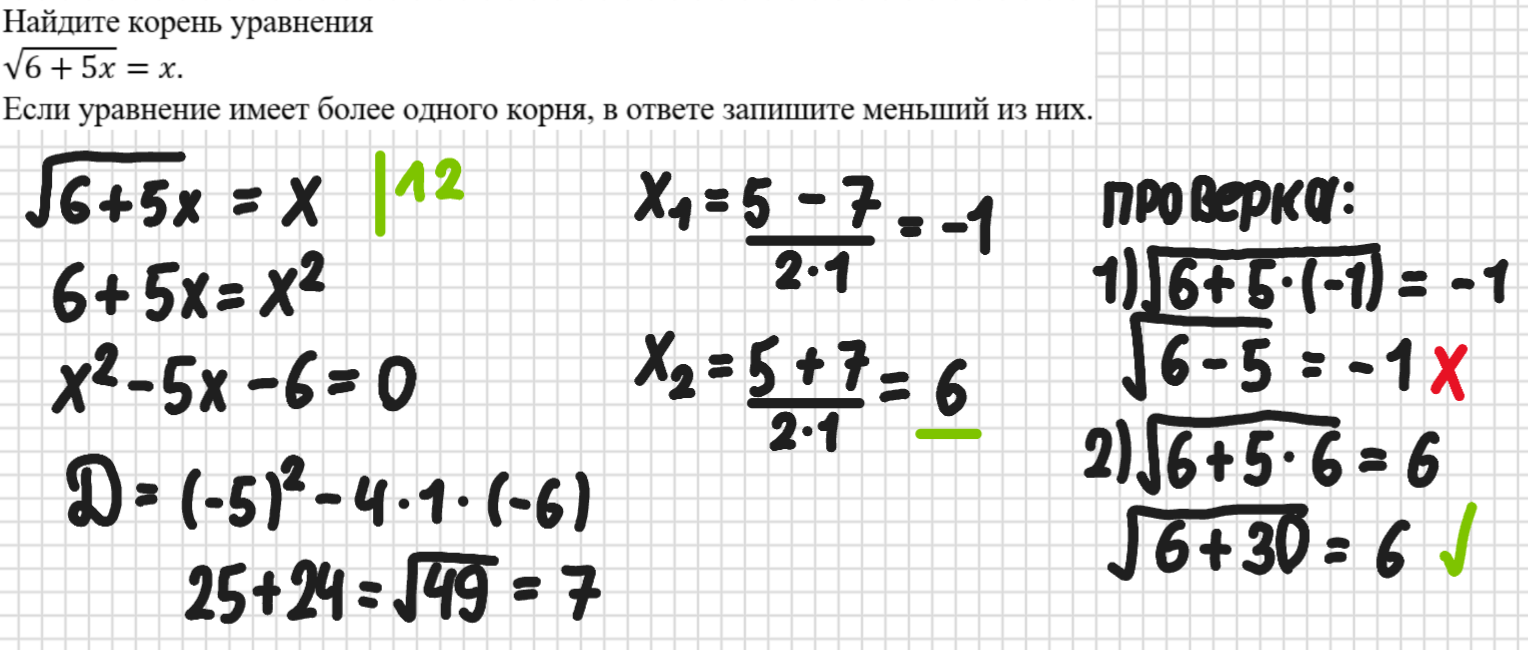 Найдите корень уравнения
√(6 + 5x) = x.
Если уравнение имеет более одного корня, в ответе запишите меньший из них.
√(6+5x) = x |^2
6+5x=x²
x²-5x-6=0
D = (-5)²-4·1·(-6)
25+24=√49=7
x₁ = (5-7)/(2·1) = -1
x₂ = (5+7)/(2·1) = 6
проверка:
1) √(6+5·(-1)) = -1
√(6-5) = -1 x
2) √(6+5·6) = 6
√(6+30) = 6 ✓